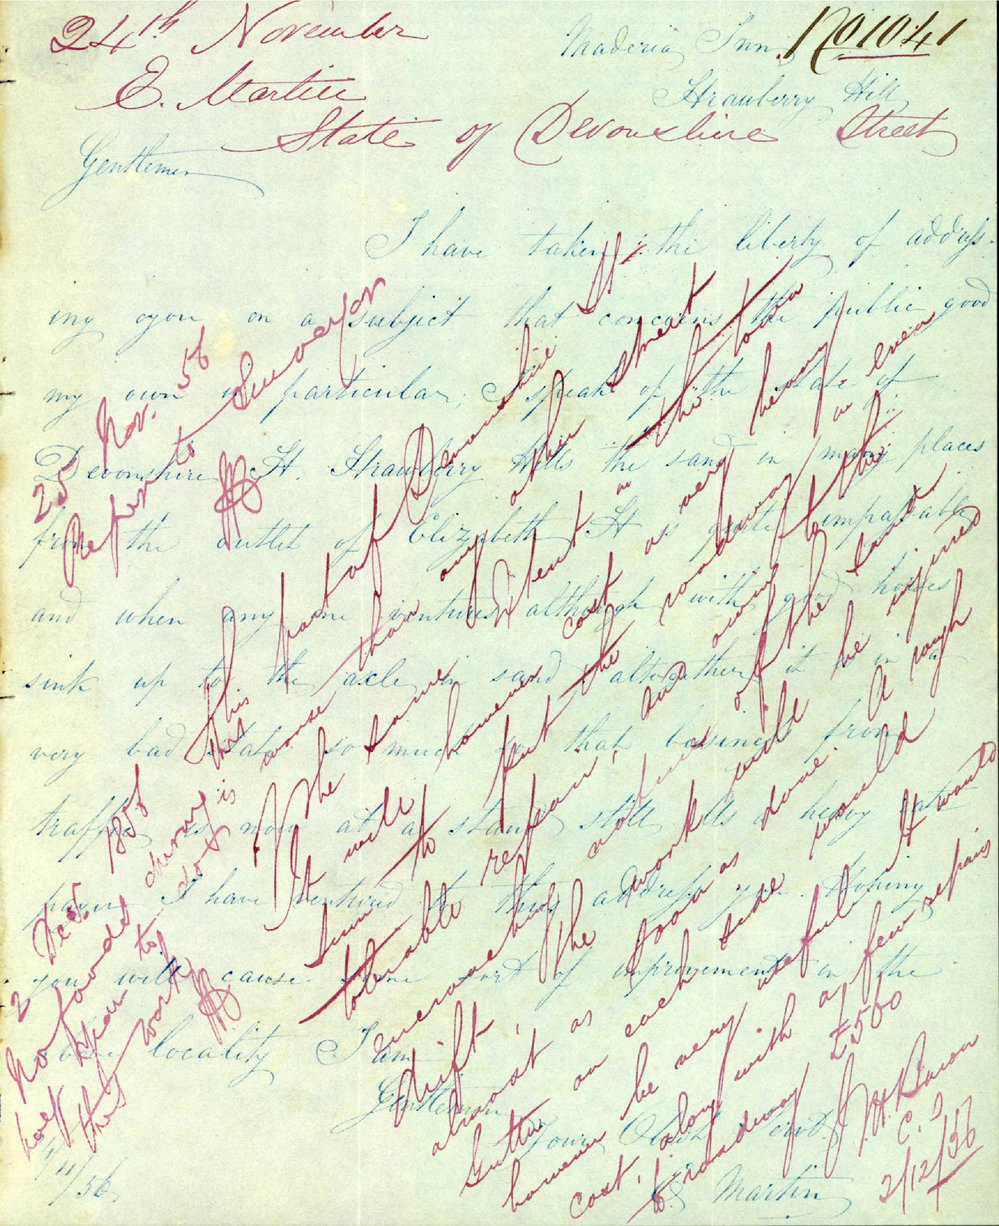 24th November
E. Martin
State of Devonshire Street
No 1041
Maderia Inn
Strawberry Hill
Gentlemen
I have taken the liberty of address-
ing you on a subject that concerns the public good
my own in particular, I speak of the state of
Devonshire St. Strawberry Hills the sand in many places
from the outlet of Elizabeth St is quite impassable
and when any one ventures although with good horses
sink up to the axle in sand altogether it is in a
very bad state so much so that business from
traffic is now at a stand still, As a heavy rate
payer I have ventured to thus address you. Hoping
you will cause some sort of improvement in the
locality I am
Gentlemen
Your Obedt Servt.
E Martin
/11/56
25 Nov. 56
Report to Surveyor
This part of Devonshire St
is worse than any other street
The same extent in the town
It will however cost a very heavy
sum to put the roadway in even
tolerable repair, and owing to the
encroaching nature of the sand
drift, the work will be injured
almost as soon as done. A rough
gutter on each side would
however be very useful. It would
cost, along with a few repairs
to roadway £500
J. H. Baron
C. S
2/12/56
2 Dec 1856
No funds during
last year to do this
this work